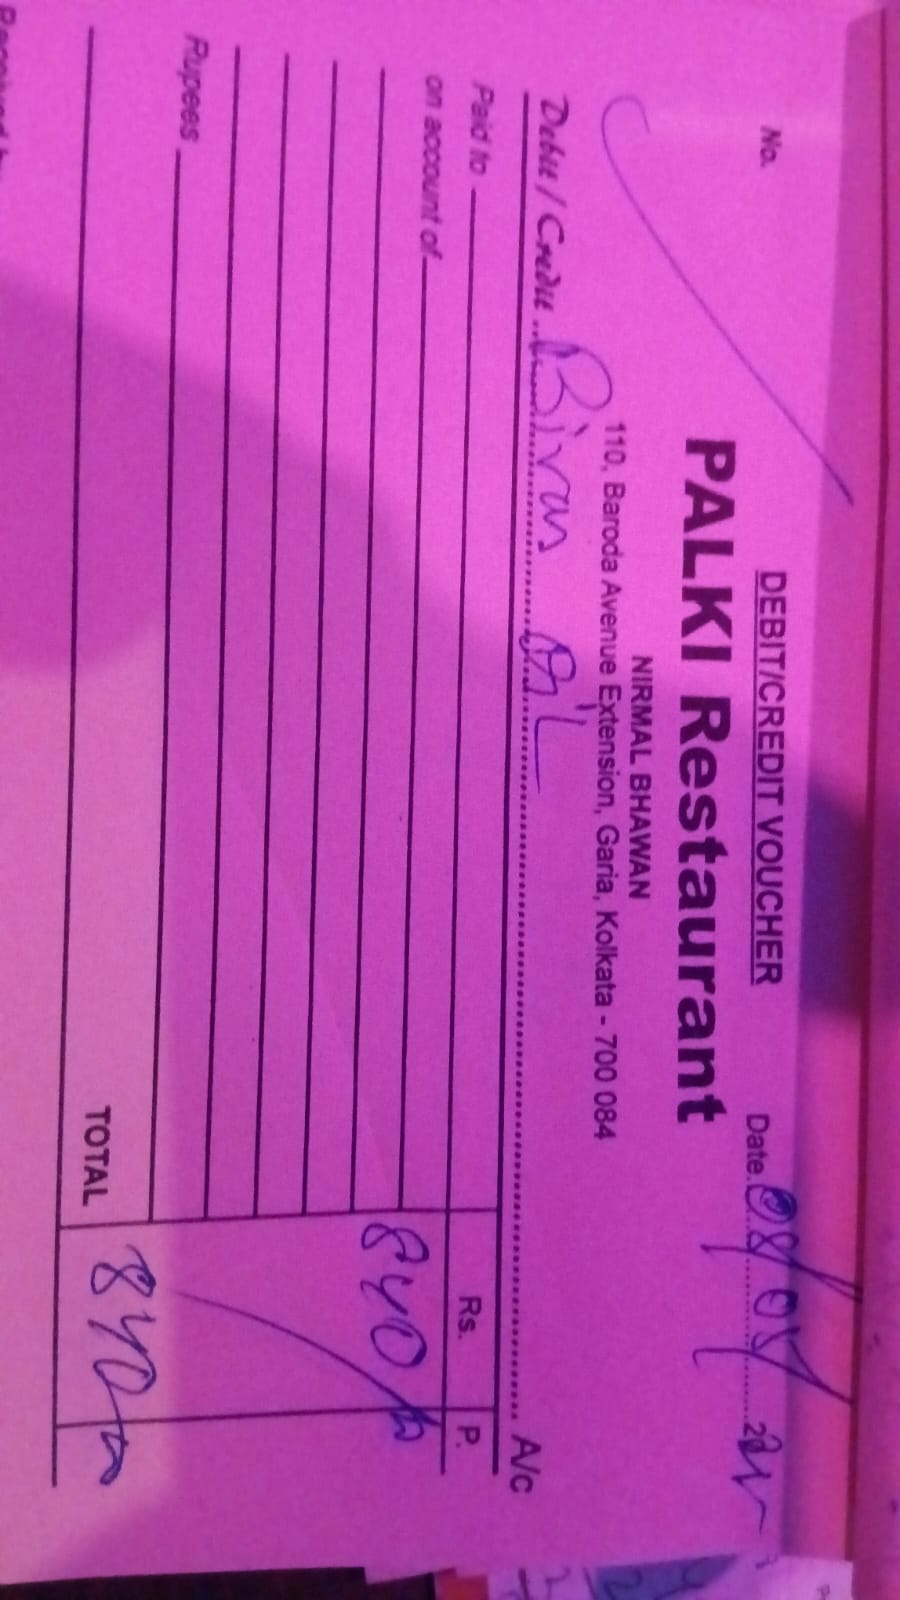 DEBIT/CREDIT VOUCHER
No.
Date. 08/05/
PALKI Restaurant
NIRMAL BHAWAN
110, Baroda Avenue Extension, Garia, Kolkata - 700 084
Debit / Credit Biras Oil A/c
Paid to
Rs. P.
on account of
840/-
Rupees
TOTAL 840/-